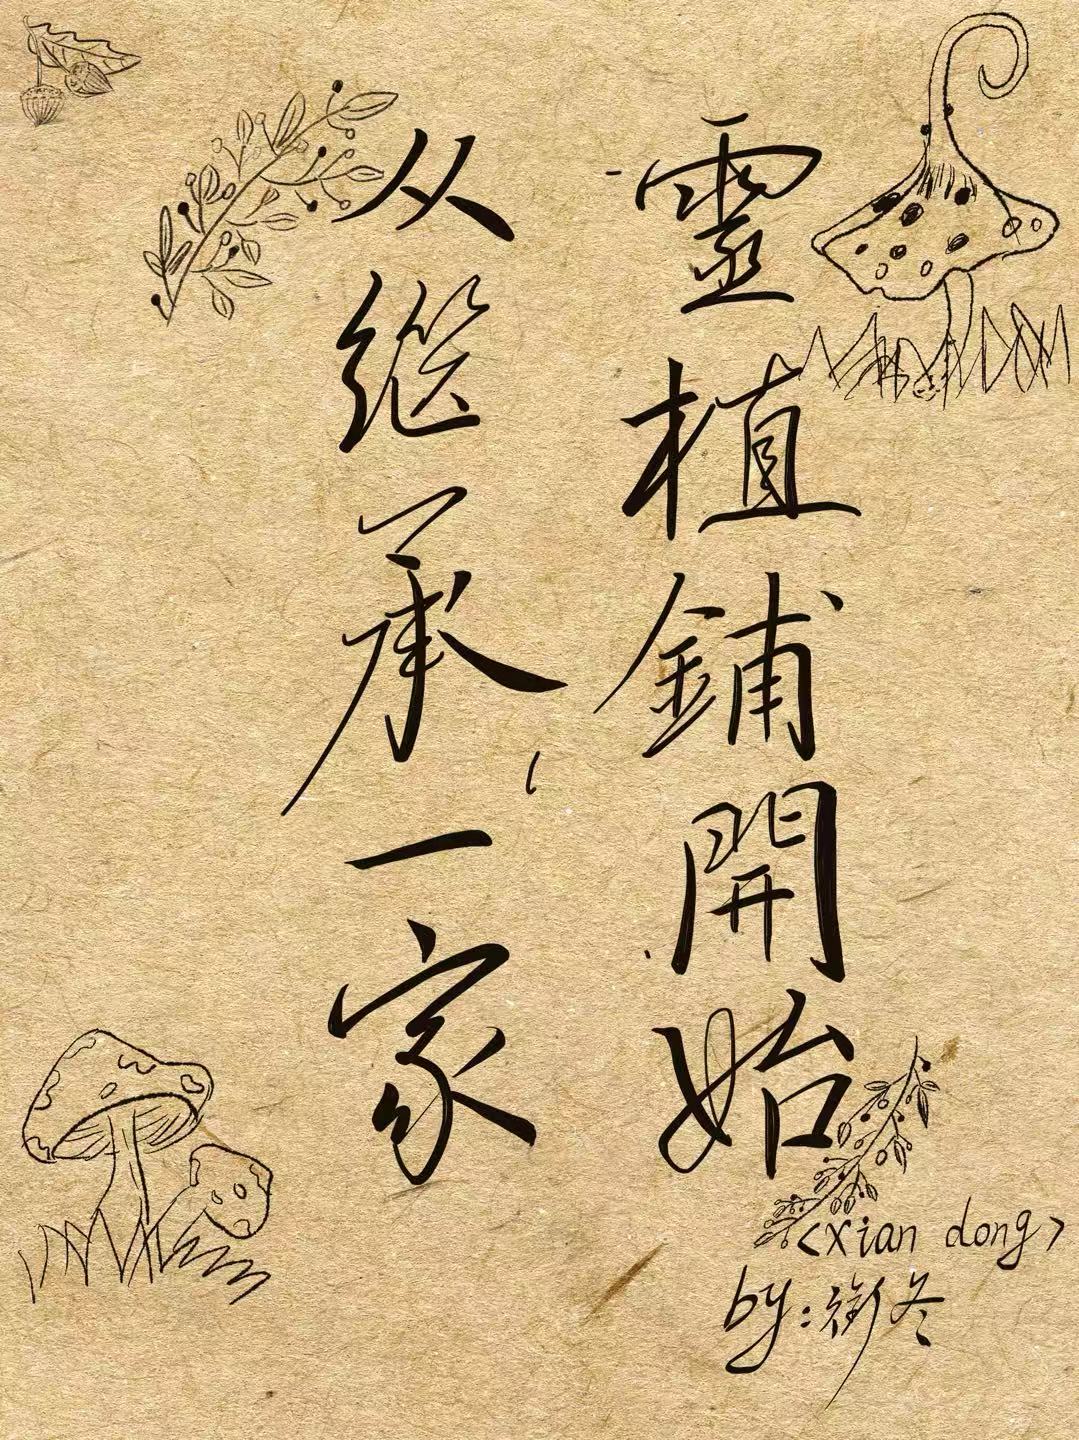 从继承一家
靈植鋪開始
<xian dong>
by:衔冬